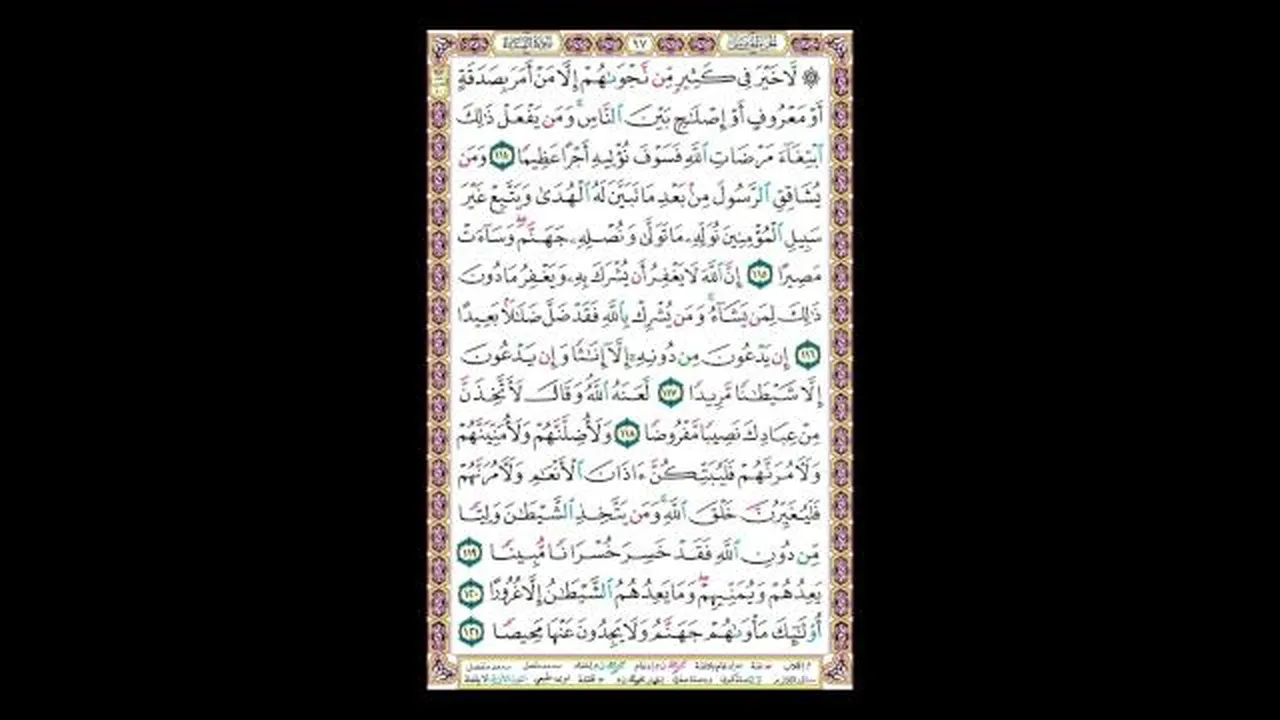 سورة النساء ٩٧ الجزء الخامس
۞ لَّا خَيْرَ فِى كَثِيرٍ مِّن نَّجْوَىٰهُمْ إِلَّا مَنْ أَمَرَ بِصَدَقَةٍ
أَوْ مَعْرُوفٍ أَوْ إِصْلَٰحٍۭ بَيْنَ ٱلنَّاسِ ۚ وَمَن يَفْعَلْ ذَٰلِكَ
ٱبْتِغَآءَ مَرْضَاتِ ٱللَّهِ فَسَوْفَ نُؤْتِيهِ أَجْرًا عَظِيمًا ١١٤ وَمَن
يُشَاقِقِ ٱلرَّسُولَ مِنۢ بَعْدِ مَا تَبَيَّنَ لَهُ ٱلْهُدَىٰ وَيَتَّبِعْ غَيْرَ
سَبِيلِ ٱلْمُؤْمِنِينَ نُوَلِّهِۦ مَا تَوَلَّىٰ وَنُصْلِهِۦ جَهَنَّمَ ۖ وَسَآءَتْ
مَصِيرًا ١١٥ إِنَّ ٱللَّهَ لَا يَغْفِرُ أَن يُشْرَكَ بِهِۦ وَيَغْفِرُ مَا دُونَ
ذَٰلِكَ لِمَن يَشَآءُ ۚ وَمَن يُشْرِكْ بِٱللَّهِ فَقَدْ ضَلَّ ضَلَٰلًۢا بَعِيدًا
١١٦ إِن يَدْعُونَ مِن دُونِهِۦٓ إِلَّآ إِنَٰثًا وَإِن يَدْعُونَ
إِلَّا شَيْطَٰنًا مَّرِيدًا ١١٧ لَّعَنَهُ ٱللَّهُ ۘ وَقَالَ لَأَتَّخِذَنَّ
مِنْ عِبَادِكَ نَصِيبًا مَّفْرُوضًا ١١٨ وَلَأُضِلَّنَّهُمْ وَلَأُمَنِّيَنَّهُمْ
وَلَءَامُرَنَّهُمْ فَلَيُبَتِّكُنَّ ءَاذَانَ ٱلْأَنْعَٰمِ وَلَءَامُرَنَّهُمْ
فَلَيُغَيِّرُنَّ خَلْقَ ٱللَّهِ ۚ وَمَن يَتَّخِذِ ٱلشَّيْطَٰنَ وَلِيًّا
مِّن دُونِ ٱللَّهِ فَقَدْ خَسِرَ خُسْرَانًا مُّبِينًا ١١٩
يَعِدُهُمْ وَيُمَنِّيهِمْ ۖ وَمَا يَعِدُهُمُ ٱلشَّيْطَٰنُ إِلَّا غُرُورًا ١٢٠
أُو۟لَٰٓئِكَ مَأْوَىٰهُمْ جَهَنَّمُ وَلَا يَجِدُونَ عَنْهَا مَحِيصًا ١٢١